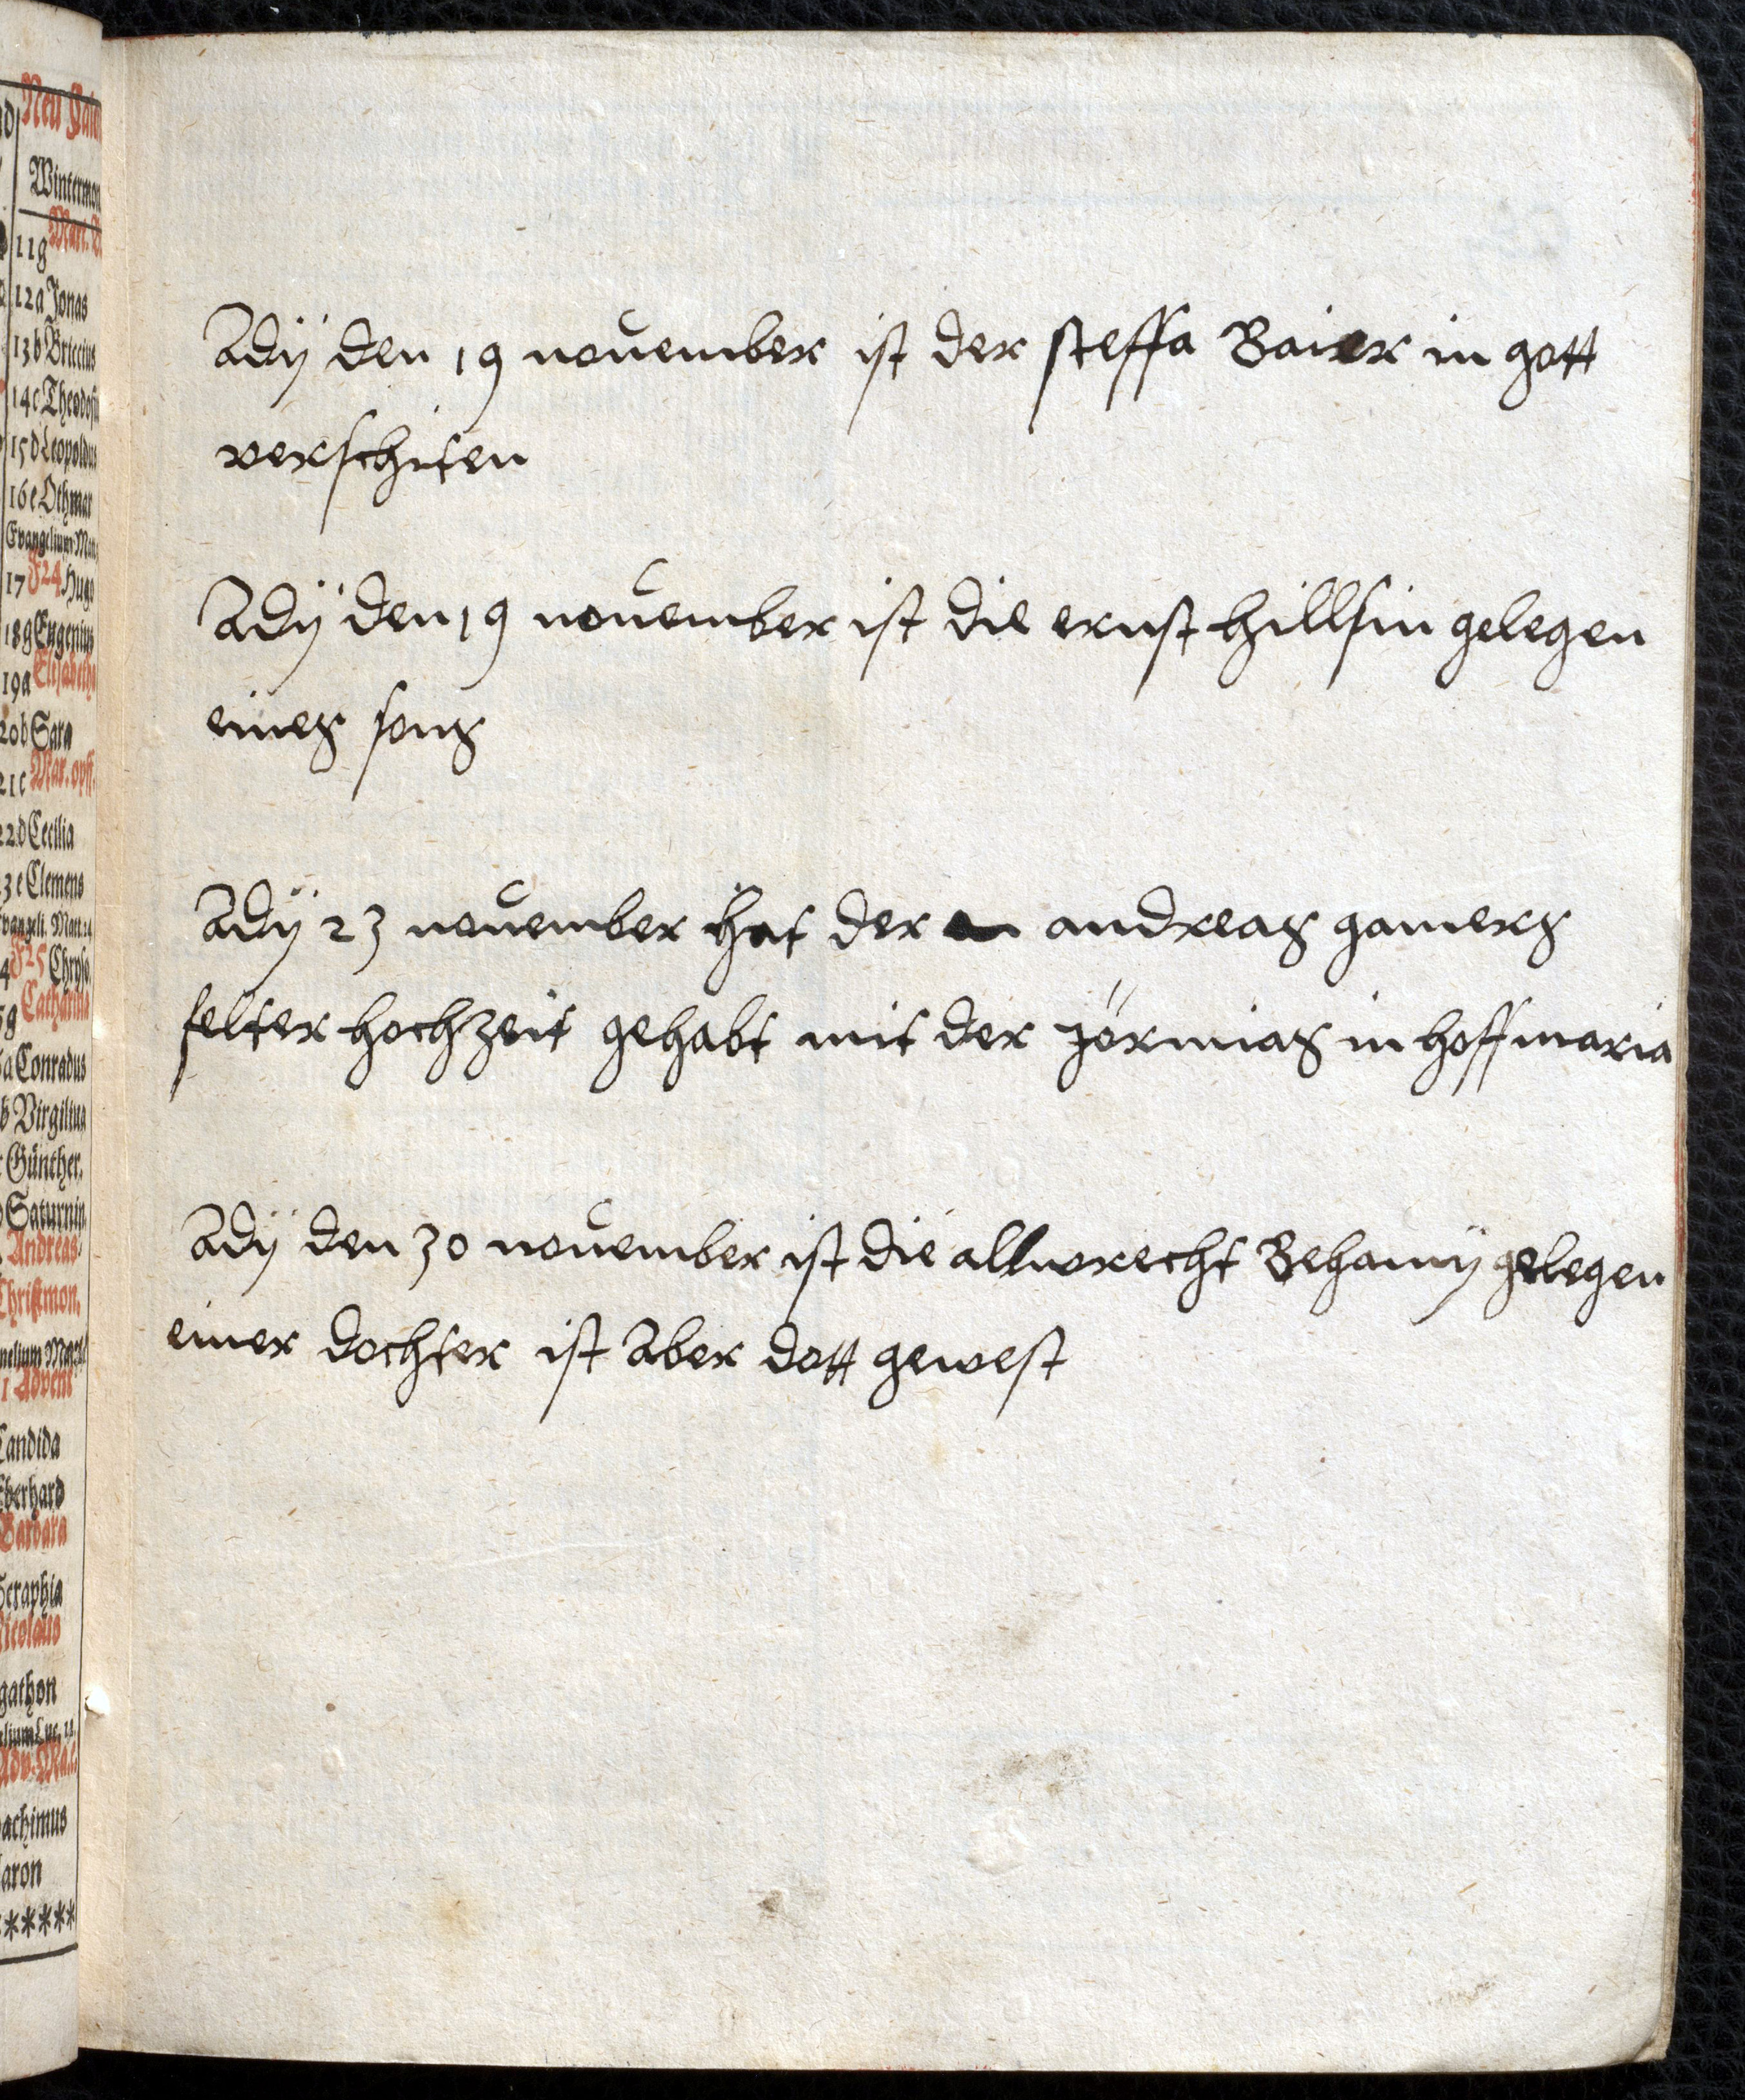 Neu Cale
Wintermon
11 g Mart. B.
12 a Jonas
13 b Briccius
14 c Theodosi
15 d Leopoldus
16 e Othmar
Evangelium Mat
17 F 24 Hugo
18 g Eugenius
19 a Elisabetha
20 b Sara
21 c Mar. opff.
22 d Cecilia
3 e Clemens
vangeli. Matt. 24
4 F 25 Chryso.
5 g Catharina
a Conradus
b Virgilius
Günther.
Saturnin.
Andreas
Christmon.
1 Advent
Candida
Eberhard
Barbara
Seraphia
Nicolaus
gathon
elium Luc. 21.
achimus
aron
******
Adÿ den 19 nouember ist der steffa Baier in gott
verschiten
Adÿ den 19 nouember ist die ernst hillsin gelegen
eines sons
Adÿ 23 nouember hat der andreas gamers
felter hochzeit gehabt mit der jörmias in hoff maria
Adÿ den 30 nouember ist die allwrecht Behamÿ gelegen
einer dochter ist aber dott gewest